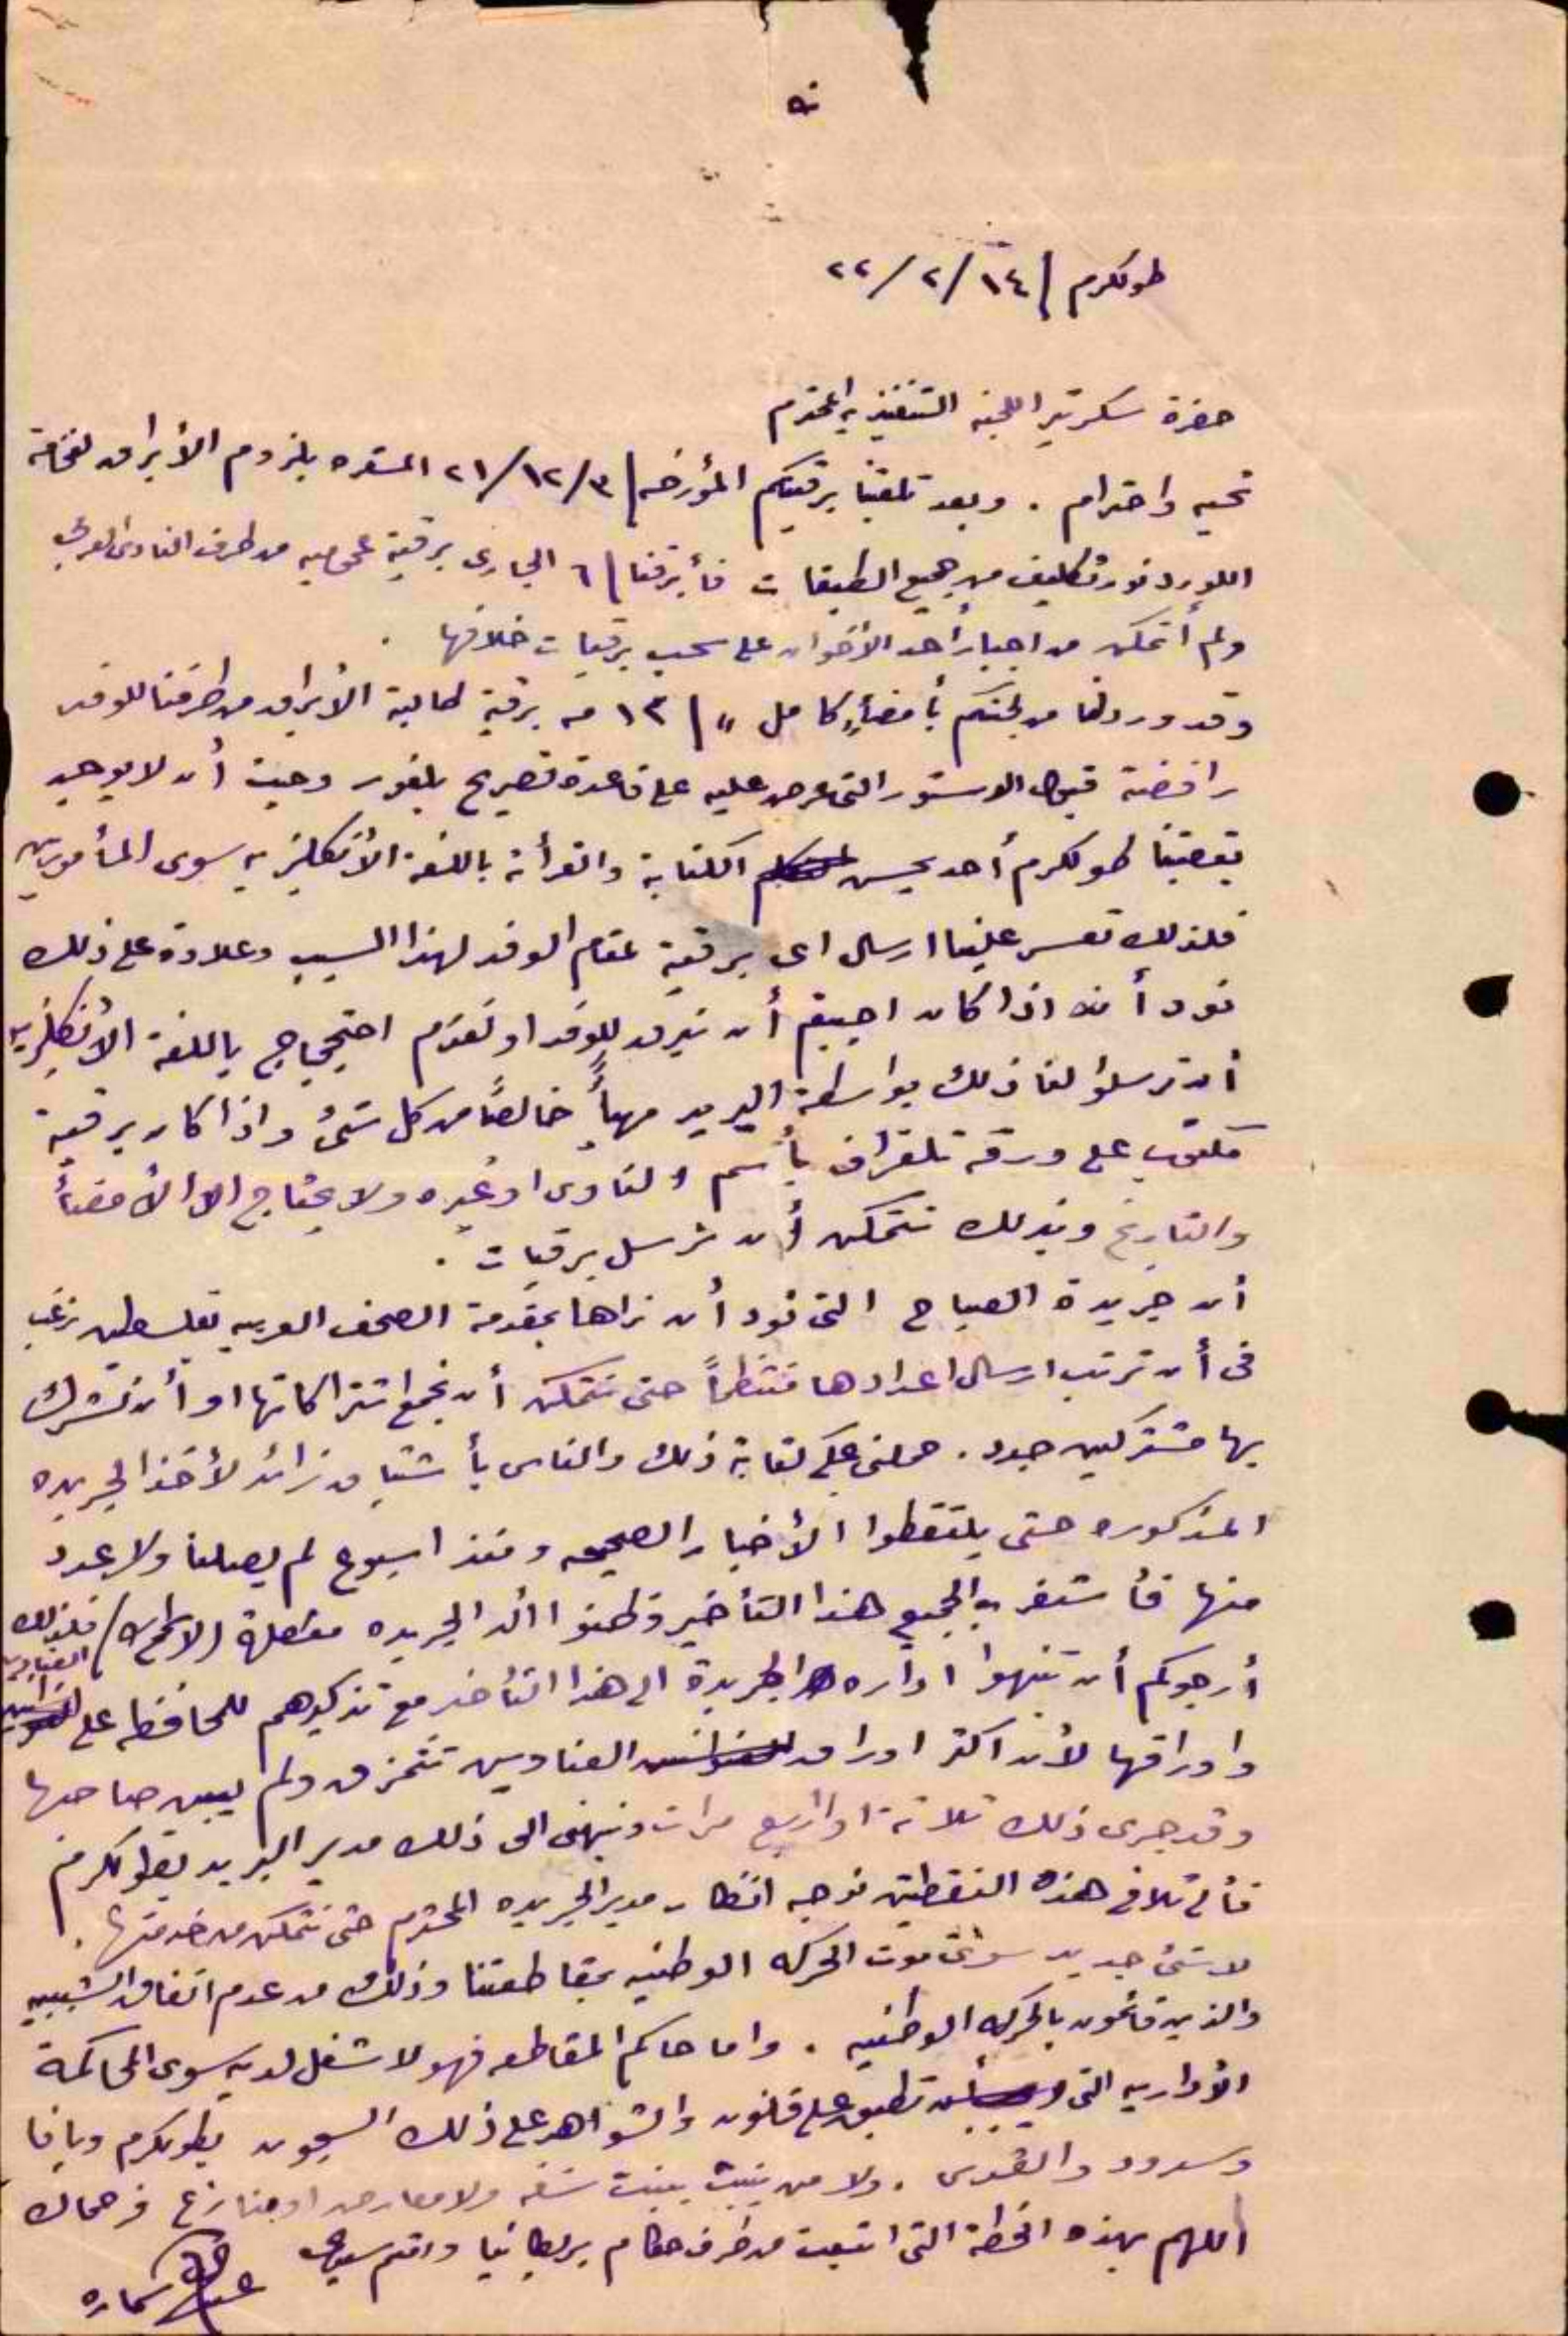 طولكرم / ١٤ / ٢ / ٢٢
حضرة سكرتير اللجنه التنفيذيه المحترم
تحيه واحترام . وبعد تلقينا برقيتكم المؤرخه / ٣ / ١٢ / ٢١ بلزوم الأبراق لفخامة
اللورد نورثكليف من جميع الطبقات فأبرقنا / ٦ الجارى برقية من طرف النادى العربي
ولم أتمكن من اجبار أحد الأخوان على سحب برقيات خلافها .
وقد وردنا من لجنتكم بأمضأ كامل / ١٣ منه برقية طالبة الأبراق من طرفنا للوفد
رافضة قبول الدستور التى عرض عليه على قاعدة تصريح بلفور وحيث أن لا يوجد
بقصبتنا طولكرم أحد يحسن الكتابة والقرأة باللغة الأنكليزيه سوى المأمورين
فلذلك تعسر علينا ارسال اى برقية لمقام الوفد لهذا السبب وعلاوة على ذلك
نود أنه اذا كان احببتم أن نبرق للوفد او نقدم احتجاج باللغة الأنكليزيه
أن ترسلوا لنا ذلك بواسطة البريد مهيأً خالصاً من كل شئ واذا كان برقية
مكتوب على ورقة تلغراف بأسم النادى او غيره ولا يحتاج الا الأمضأ
والتاريخ وبذلك نتمكن أن نرسل برقيات .
أن جريدة الصباح التى نود أن نراها بمقدمة الصحف العربيه بفلسطين نرغب
فى أن ترتب ارسال اعدادها منتظماً حتى نتمكن أن نجمع اشتراكاتها او أن نشترك
بها مشتركين جدد . حملنى على كتابة ذلك والناس بأشتياق زائد لأخذ الجريده
المذكوره حتى يلتقطوا الأخبار الصحيحه ومنذ اسبوع لم يصلنا ولا عدد
منها فأستغرب الجميع هذا التأخير وظنوا أن الجريده معطلة (لا سمح الله) فلذلك
أرجوكم أن تنبهوا اداره الجريدة الى هذا التأخر مع تذكيرهم للمحافظه على العناوين
واوراقها لأن اكثر اوراق العناوين تتمزق ولم يبين صاحبها
وقد جرى ذلك ثلاثة او اربع مرات ونبهنى الى ذلك مدير البريد بطولكرم
فألى تلافى هذه النقطتين نوجه انظار مدير الجريده المحترم حتى نتمكن من خدمتها .
لا شئ جديد سوى موت الحركه الوطنيه بمقاطعتنا وذلك من عدم اتفاق الشبيبه
والذين قائمون بالحركه الوطنيه . واما حاكم المقاطعه فهو لا شغل لديه سوى المحاكمة
الأداريه التى تطبق على قانون والشواهد على ذلك السجون بطولكرم ويافا
والقدس . ولا من ينبت ببنت شفه ولا معارض او منازع فرحماك
اللهم بهذه الخطة التى اتبعت من طرف حكام بريطانيا ودمتم
سماره